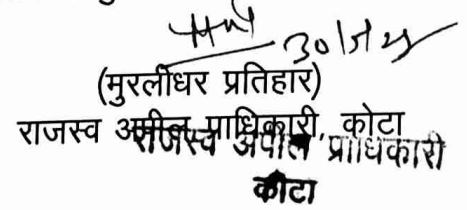 (मुरलीधर प्रतिहार)
राजस्व अपील प्राधिकारी, कोटा
राजस्व अपील प्राधिकारी
कोटा